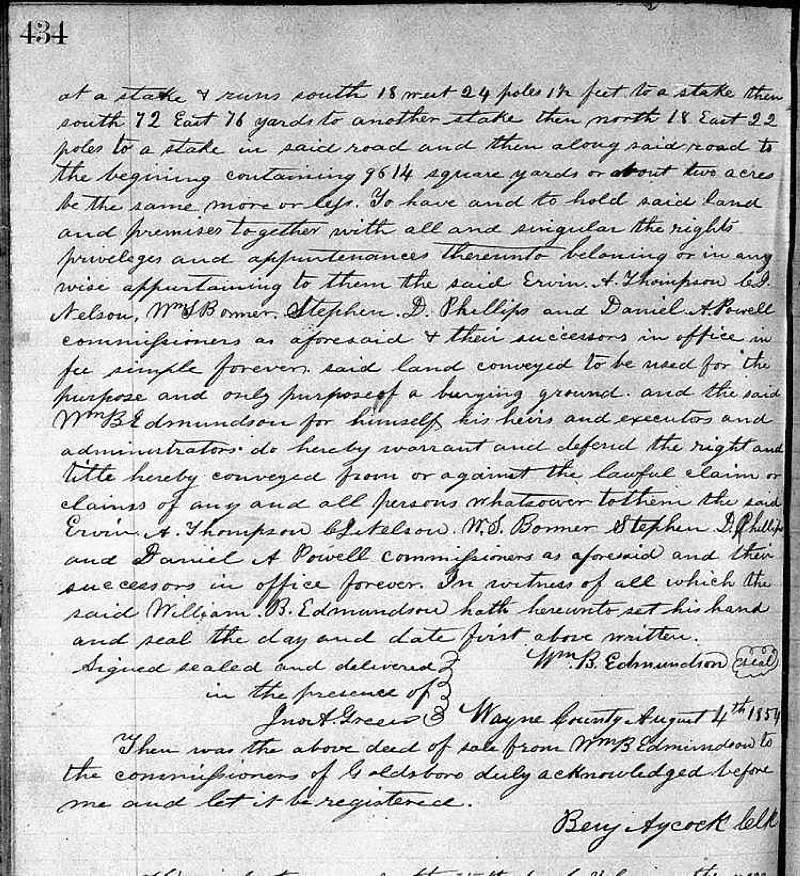 434
at a stake & runs south 18 west 24 poles 1½ feet to a stake then
south 72 East 76 yards to another stake then north 18 East 22
poles to a stake in said road and then along said road to
the begining containing 9614 square yards or about two acres
be the same more or less. To have and to hold said land
and premises together with all and singular the rights
privileges and appurtenances thereunto beloning or in any
wise appurtaining to them the said Ervin. A. Thompson C. J.
Nelson, Wm S Bonner. Stephen. D. Phillips and Daniel. A. Powell
commissioners as aforesaid & their successors in office in
fee simple forever. said land conveyed to be used for the
purpose and only purpose of a burying ground. and the said
Wm B Edmundson for himself his heirs and executors and
administrators do hereby warrant and defend the right and
title hereby conveyed from or against the lawful claim or
claims of any and all persons whatsover to them the said
Ervin. A. Thompson C J Nelson. W. S. Bonner Stephen D. Phillips
and Daniel A Powell commissioners as aforesaid and their
successors in office forever. In witness of all which the
said William. B. Edmundson hath hereunto set his hand
and seal the day and date first above written.
Signed sealed and delivered } Wm. B. Edmundson (seal)
in the presence of }
Jno A Green } Wayne County August 4th 1854
Then was the above deed of sale from Wm B Edmundson to
the commissioners of Goldsboro duly acknowledged before
me and let it be registered.
Benj Aycock Clk